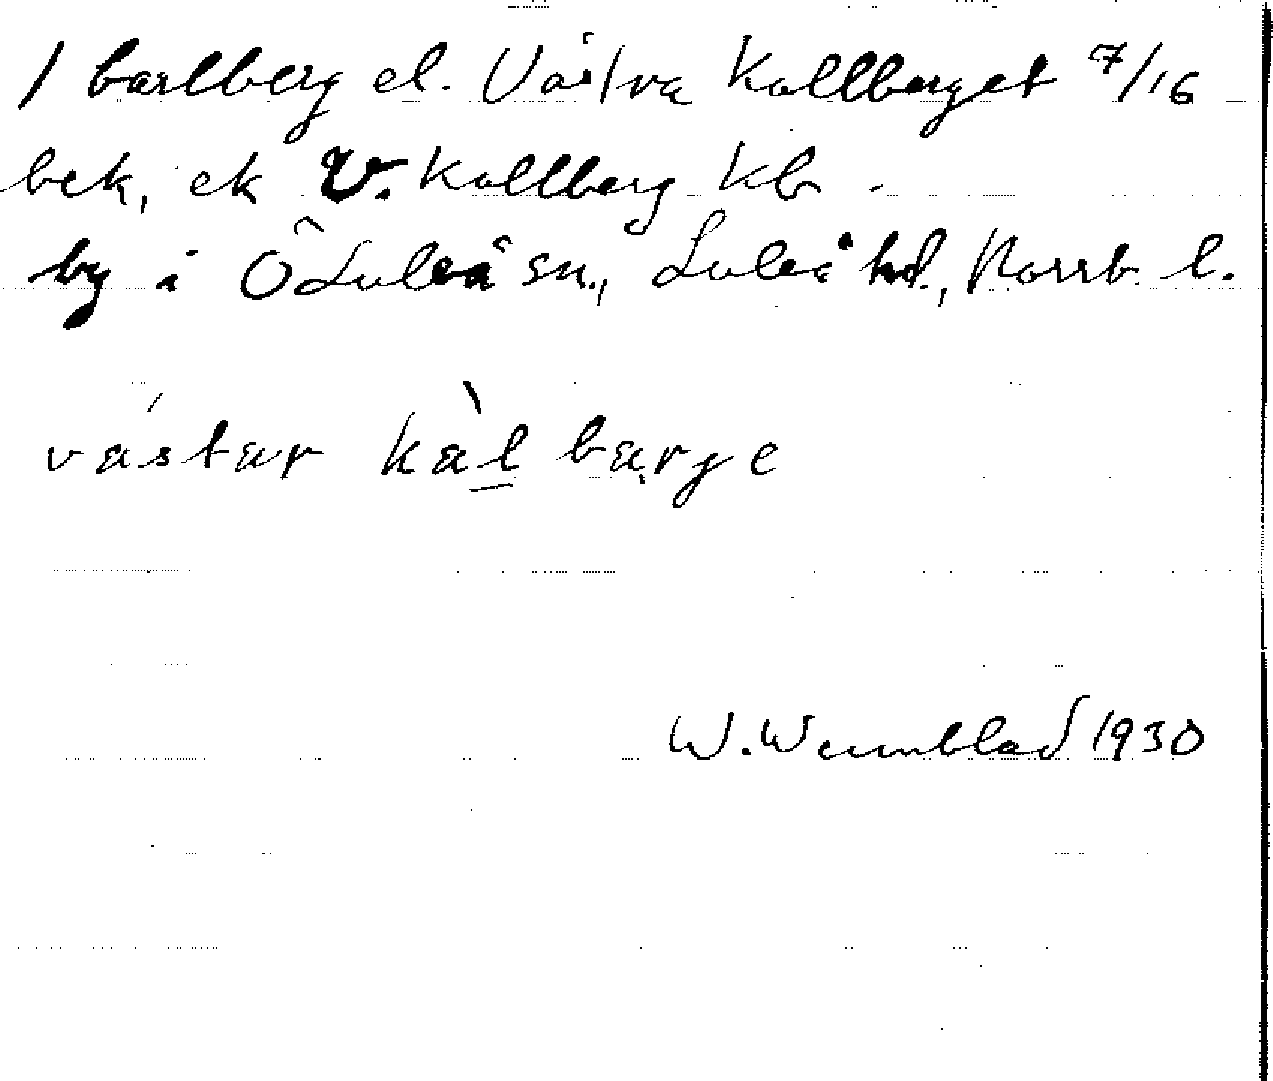 / barlberg el. Västra Kallberget 7/16
bek, ek V. Kallberg Kb
by i ÖLuleå sn., Luleå hd., Norrb. l.
västar kàl barge
W. Wennblad 1930